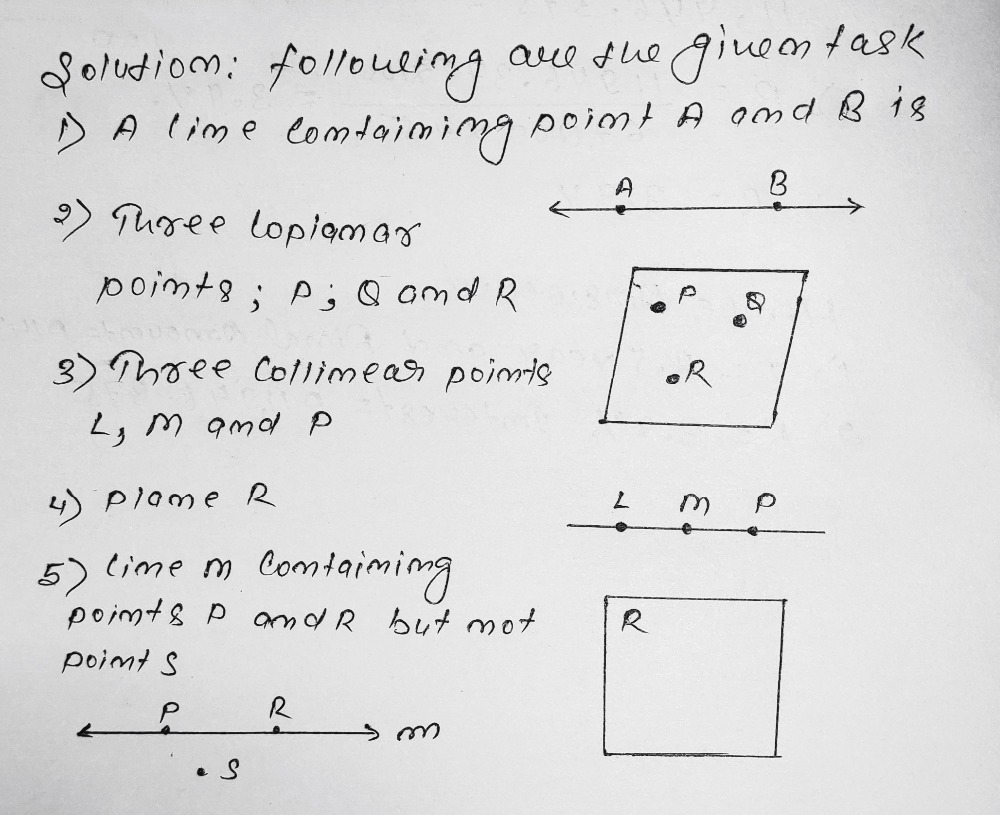 Solution: following are the given task
1) A line containing point A and B is
A B
2) Three coplanar
points; P; Q and R
P Q
R
3) Three Collinear points
L, M and P
L M P
4) plane R
R
5) line m Containing
points P and R but not
point S
P R
m
S